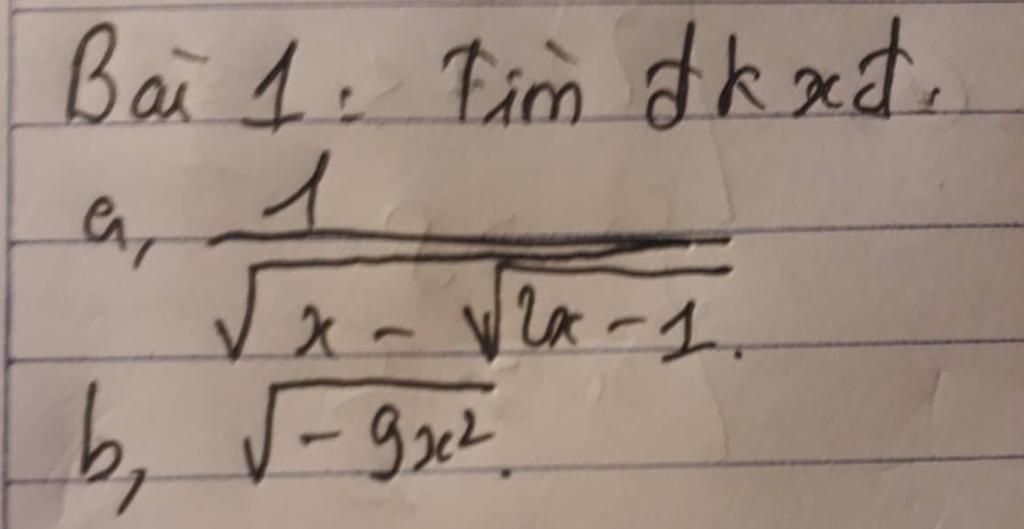 Bài 1: Tìm đkxđ.
a, \frac{1}{\sqrt{x - \sqrt{2x - 1}}}.
b, \sqrt{-9x²}.